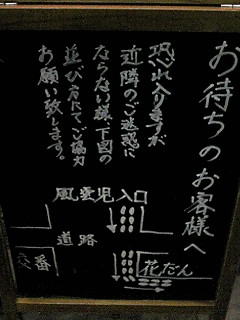 お待ちのお客様へ
恐れ入りますが
近隣のご迷惑に
ならない様、下図の
並び方にてご協力
お願い致します。
風雲児入口
道路
交番
花だん